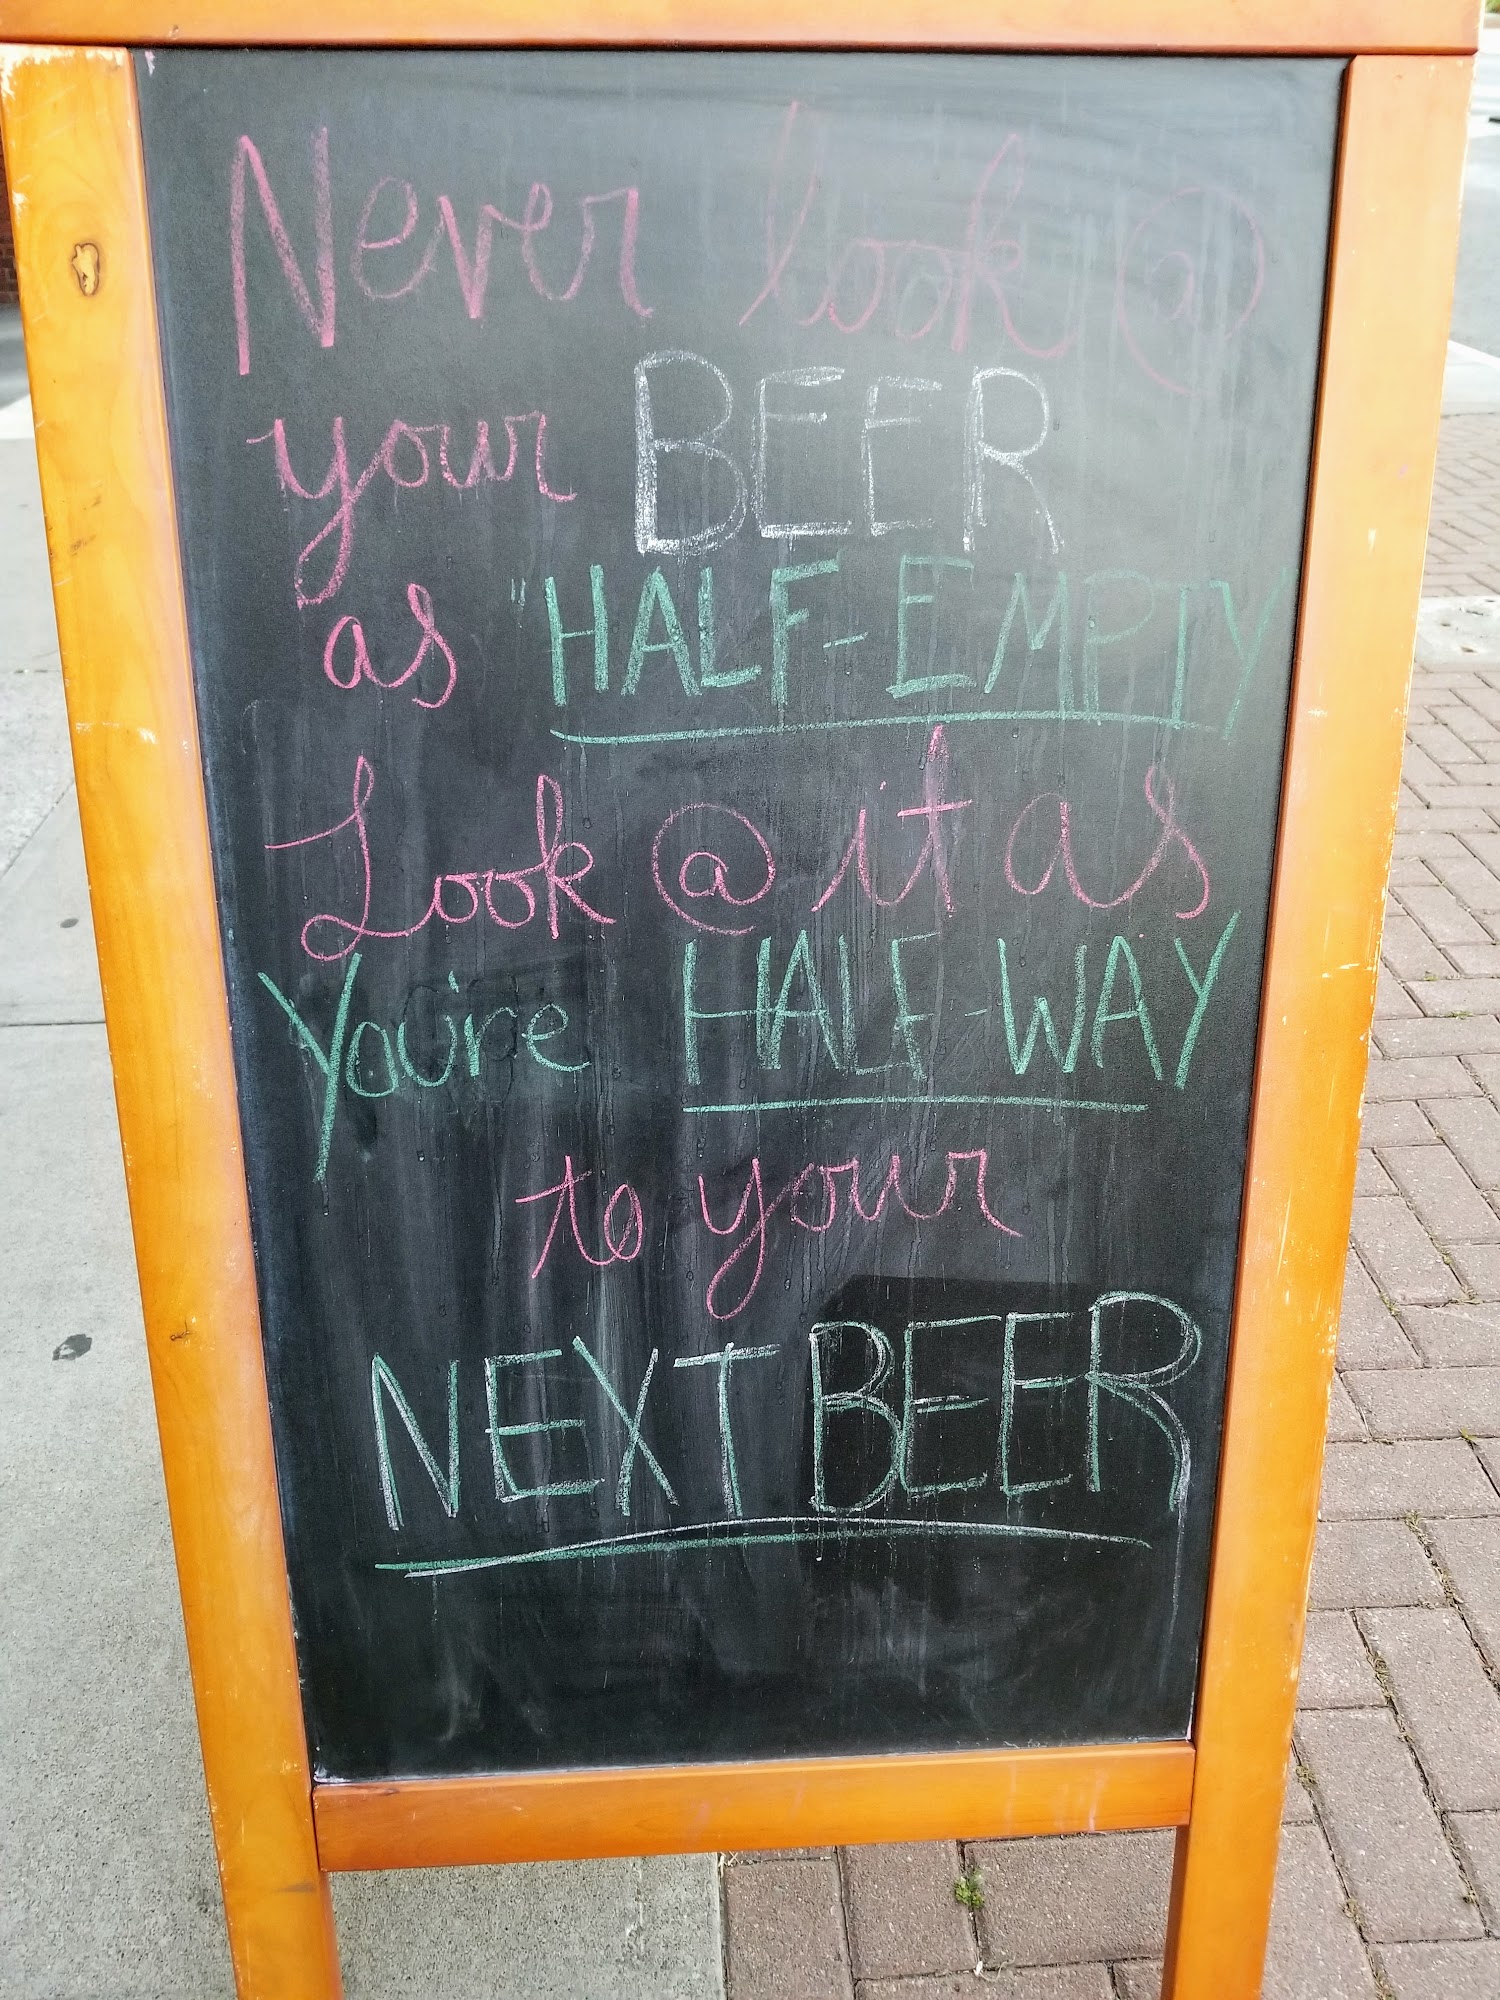 Never look @
your BEER
as "HALF-EMPTY
Look @ it as
You're HALF-WAY
to your
NEXT BEER